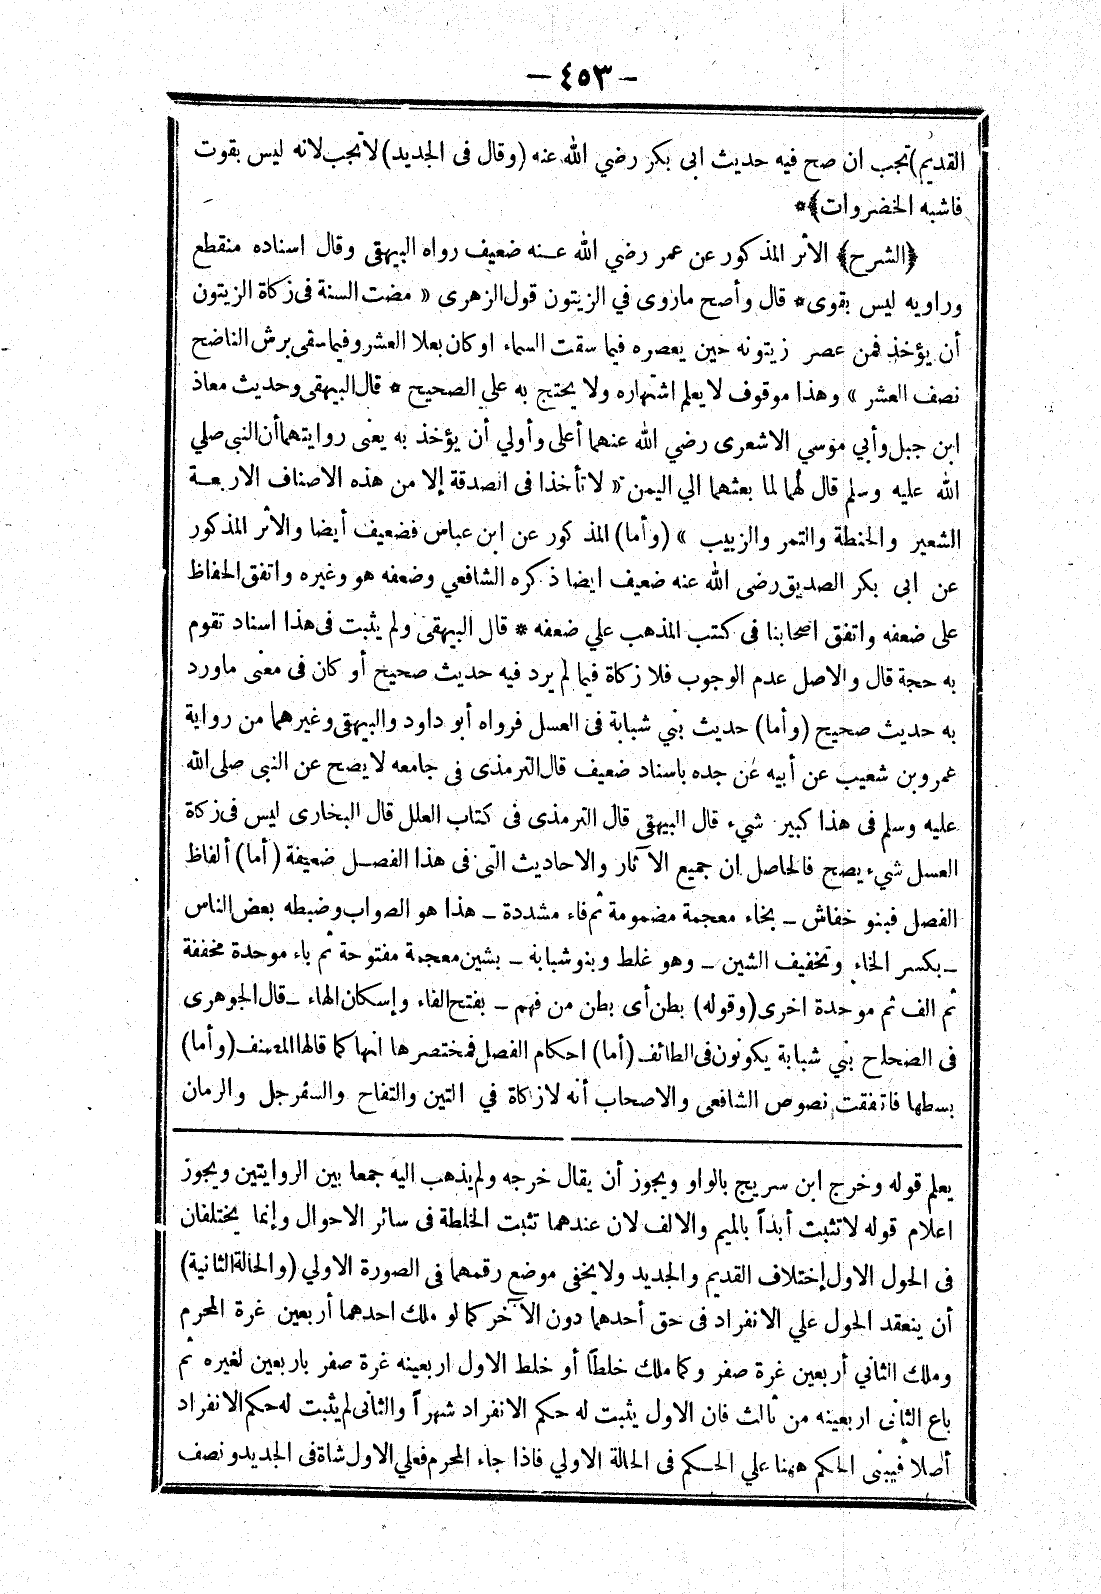 — ٤٥٣ —
القديم) تجب ان صح فيه حديث ابى بكر رضي الله عنه (وقال فى الجديد) لا تجب لانه ليس بقوت
فاشبه الخضروات﴾*
﴿الشرح﴾ الأثر المذكور عن عمر رضي الله عنه ضعيف رواه البيهقى وقال اسناده منقطع
وراويه ليس بقوى* قال وأصح ماروى في الزيتون قول الزهرى « مضت السنة فى زكاة الزيتون
أن يؤخذ فمن عصر زيتونه حين يعصره فيما سقت السماء اوكان بعلا العشر وفيما سقى برش الناضح
نصف العشر » وهذا موقوف لا يعلم اشتهاره ولا يحتج به علي الصحيح * قال البيهقى وحديث معاذ
ابن جبل وأبي موسي الاشعرى رضي الله عنهما أعلى وأولي أن يؤخذ به يعنى روايتهما أن النبى صلي
الله عليه وسلم قال لهما لما بعثهما الي اليمن « لا تأخذا فى الصدقة إلا من هذه الاصناف الاربعة
الشعير والحنطة والتمر والزبيب » (وأما) المذكور عن ابن عباس فضعيف أيضا والأثر المذكور
عن ابى بكر الصديق رضى الله عنه ضعيف ايضا ذكره الشافعي وضعفه هو وغيره واتفق الحفاظ
على ضعفه واتفق اصحابنا فى كتب المذهب علي ضعفه * قال البيهقى ولم يثبت فى هذا اسناد تقوم
به حجة قال والاصل عدم الوجوب فلا زكاة فيما لم يرد فيه حديث صحيح أو كان فى معنى ماورد
به حديث صحيح (وأما) حديث بني شبابة فى العسل فرواه أبو داود والبيهقى وغيرهما من رواية
عمرو بن شعيب عن أبيه عن جده باسناد ضعيف قال الترمذى فى جامعه لا يصح عن النبى صلى الله
عليه وسلم فى هذا كبير شيء قال البيهقى قال الترمذى فى كتاب العلل قال البخارى ليس فى زكاة
العسل شيء يصح فالحاصل ان جميع الآثار والاحاديث التى فى هذا الفصل ضعيفة (أما) ألفاظ
الفصل فبنو خفاش ــ بخاء معجمة مضمومة ثم فاء مشددة ــ هذا هو الصواب وضبطه بعض الناس
ــ بكسر الخاء وتخفيف الشين ــ وهو غلط وبنو شبابة ــ بشين معجمة مفتوحة ثم باء موحدة مخففة
ثم الف ثم موحدة اخرى (وقوله) بطن أى بطن من فهم ــ بفتح الفاء وإسكان الهاء ــ قال الجوهرى
فى الصحاح بني شبابة يكونون فى الطائف (أما) احكام الفصل فمختصرها انها كما قالها المصنف (وأما)
بسطها فاتفقت نصوص الشافعى والاصحاب أنه لا زكاة في التين والتفاح والسفرجل والرمان
يعلم قوله وخرج ابن سريج بالواو ويجوز أن يقال خرجه ولم يذهب اليه جمعا بين الروايتين ويجوز
اعلام قوله لا تثبت أبداً بالميم والالف لان عندهما تثبت الخلطة فى سائر الاحوال وإنما يختلفان
فى الحول الاول إختلاف القديم والجديد ولا يخفى موضع رقمهما فى الصورة الاولي (والحالة الثانية)
أن ينعقد الحول علي الانفراد فى حق أحدهما دون الآخر كما لو ملك احدهما أربعين غرة المحرم
وملك الثاني أربعين غرة صفر وكما ملك خلطا أو خلط الاول اربعينه غرة صفر باربعين لغيره ثم
باع الثانى اربعينه من ثالث فان الاول يثبت له حكم الانفراد شهراً والثانى لم يثبت له حكم الانفراد
أصلا فيبنى الحكم ههنا علي الحكم فى الحالة الاولي فاذا جاء المحرم فعلي الاول شاة فى الجديد ونصف